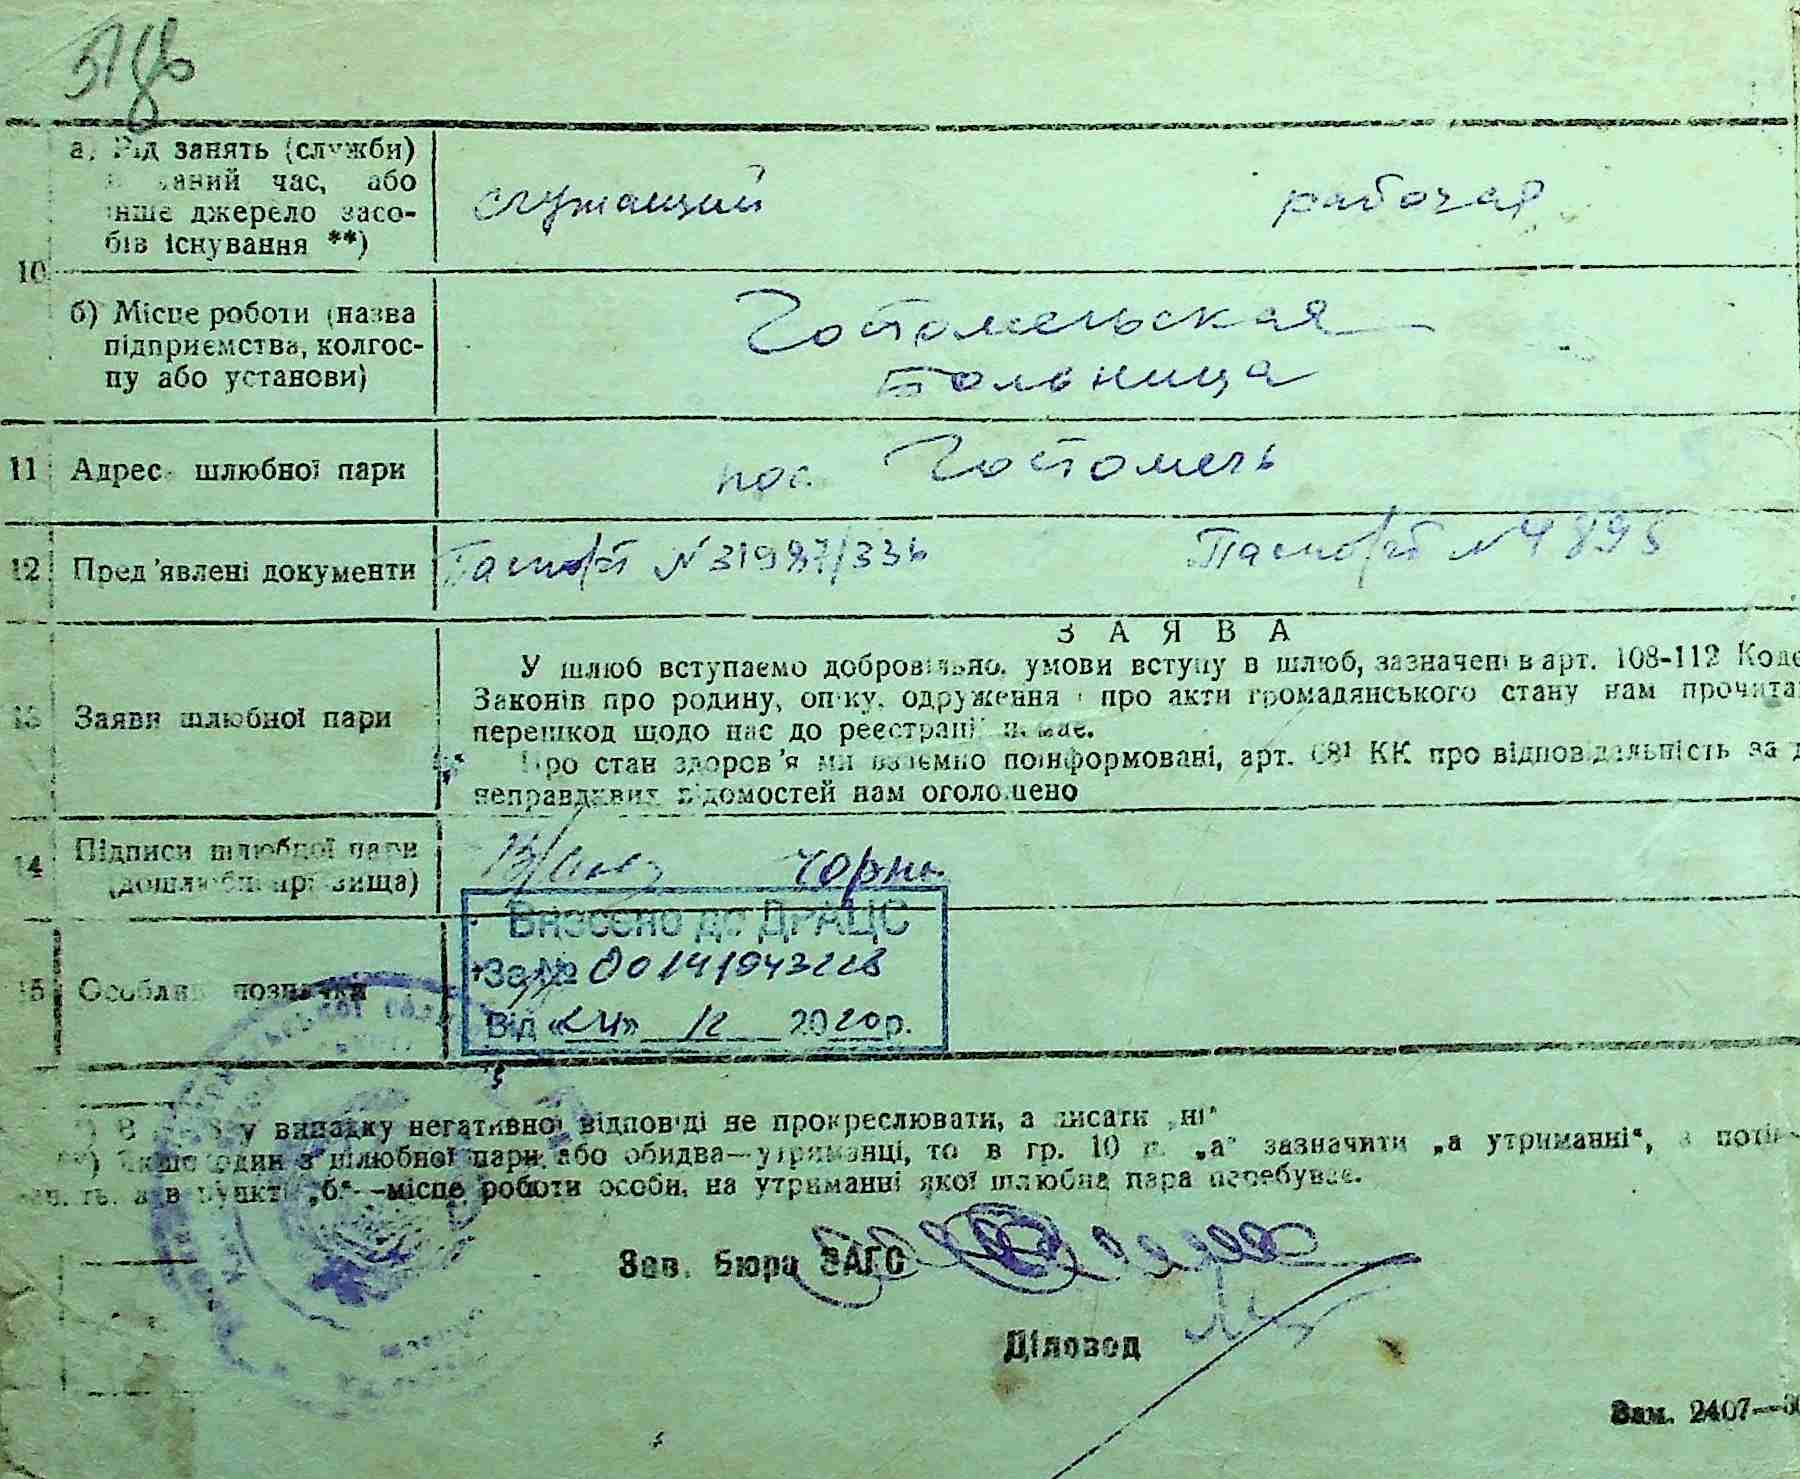 а) Рід занять (служби)
даний час, або
інше джерело засо-
бів існування **)
служащий рабочая
10
б) Місце роботи (назва
підприємства, колгос-
пу або установи)
Гостомельская
больница
11 Адрес шлюбної пари
пос. Гостомель
12 Пред'явлені документи
Паспорт N 31987/336 Паспорт N 4895
13 Заяви шлюбної пари
ЗАЯВА
У шлюб вступаємо добровільно, умови вступу в шлюб, зазначені в арт. 108-112 Коде
Законів про родину, опіку, одруження і про акти громадянського стану нам прочита
перешкод щодо нас до реєстрації немає.
Про стан здоров'я ми взаємно поінформовані, арт. 68¹ КК про відповідальність за
неправдивих відомостей нам оголошено
14 Підписи шлюбної пари
(дошлюбні прізвища)
Чорн
15 Особливі позначки
Внесено до ДРАЦС
За №
Від «24» 12 2020р.
у випадку негативної відповіді не прокреслювати, а писати „ні“
**) Якщо один з шлюбної пари, або обидва—утриманці, то в гр. 10 п. „а“ зазначити „а утриманні“, а потім
а в пункті „б“—місце роботи особи, на утриманні якої шлюбна пара перебуває.
Зав. бюра ЗАГС
Діловод
Зам. 2407—30